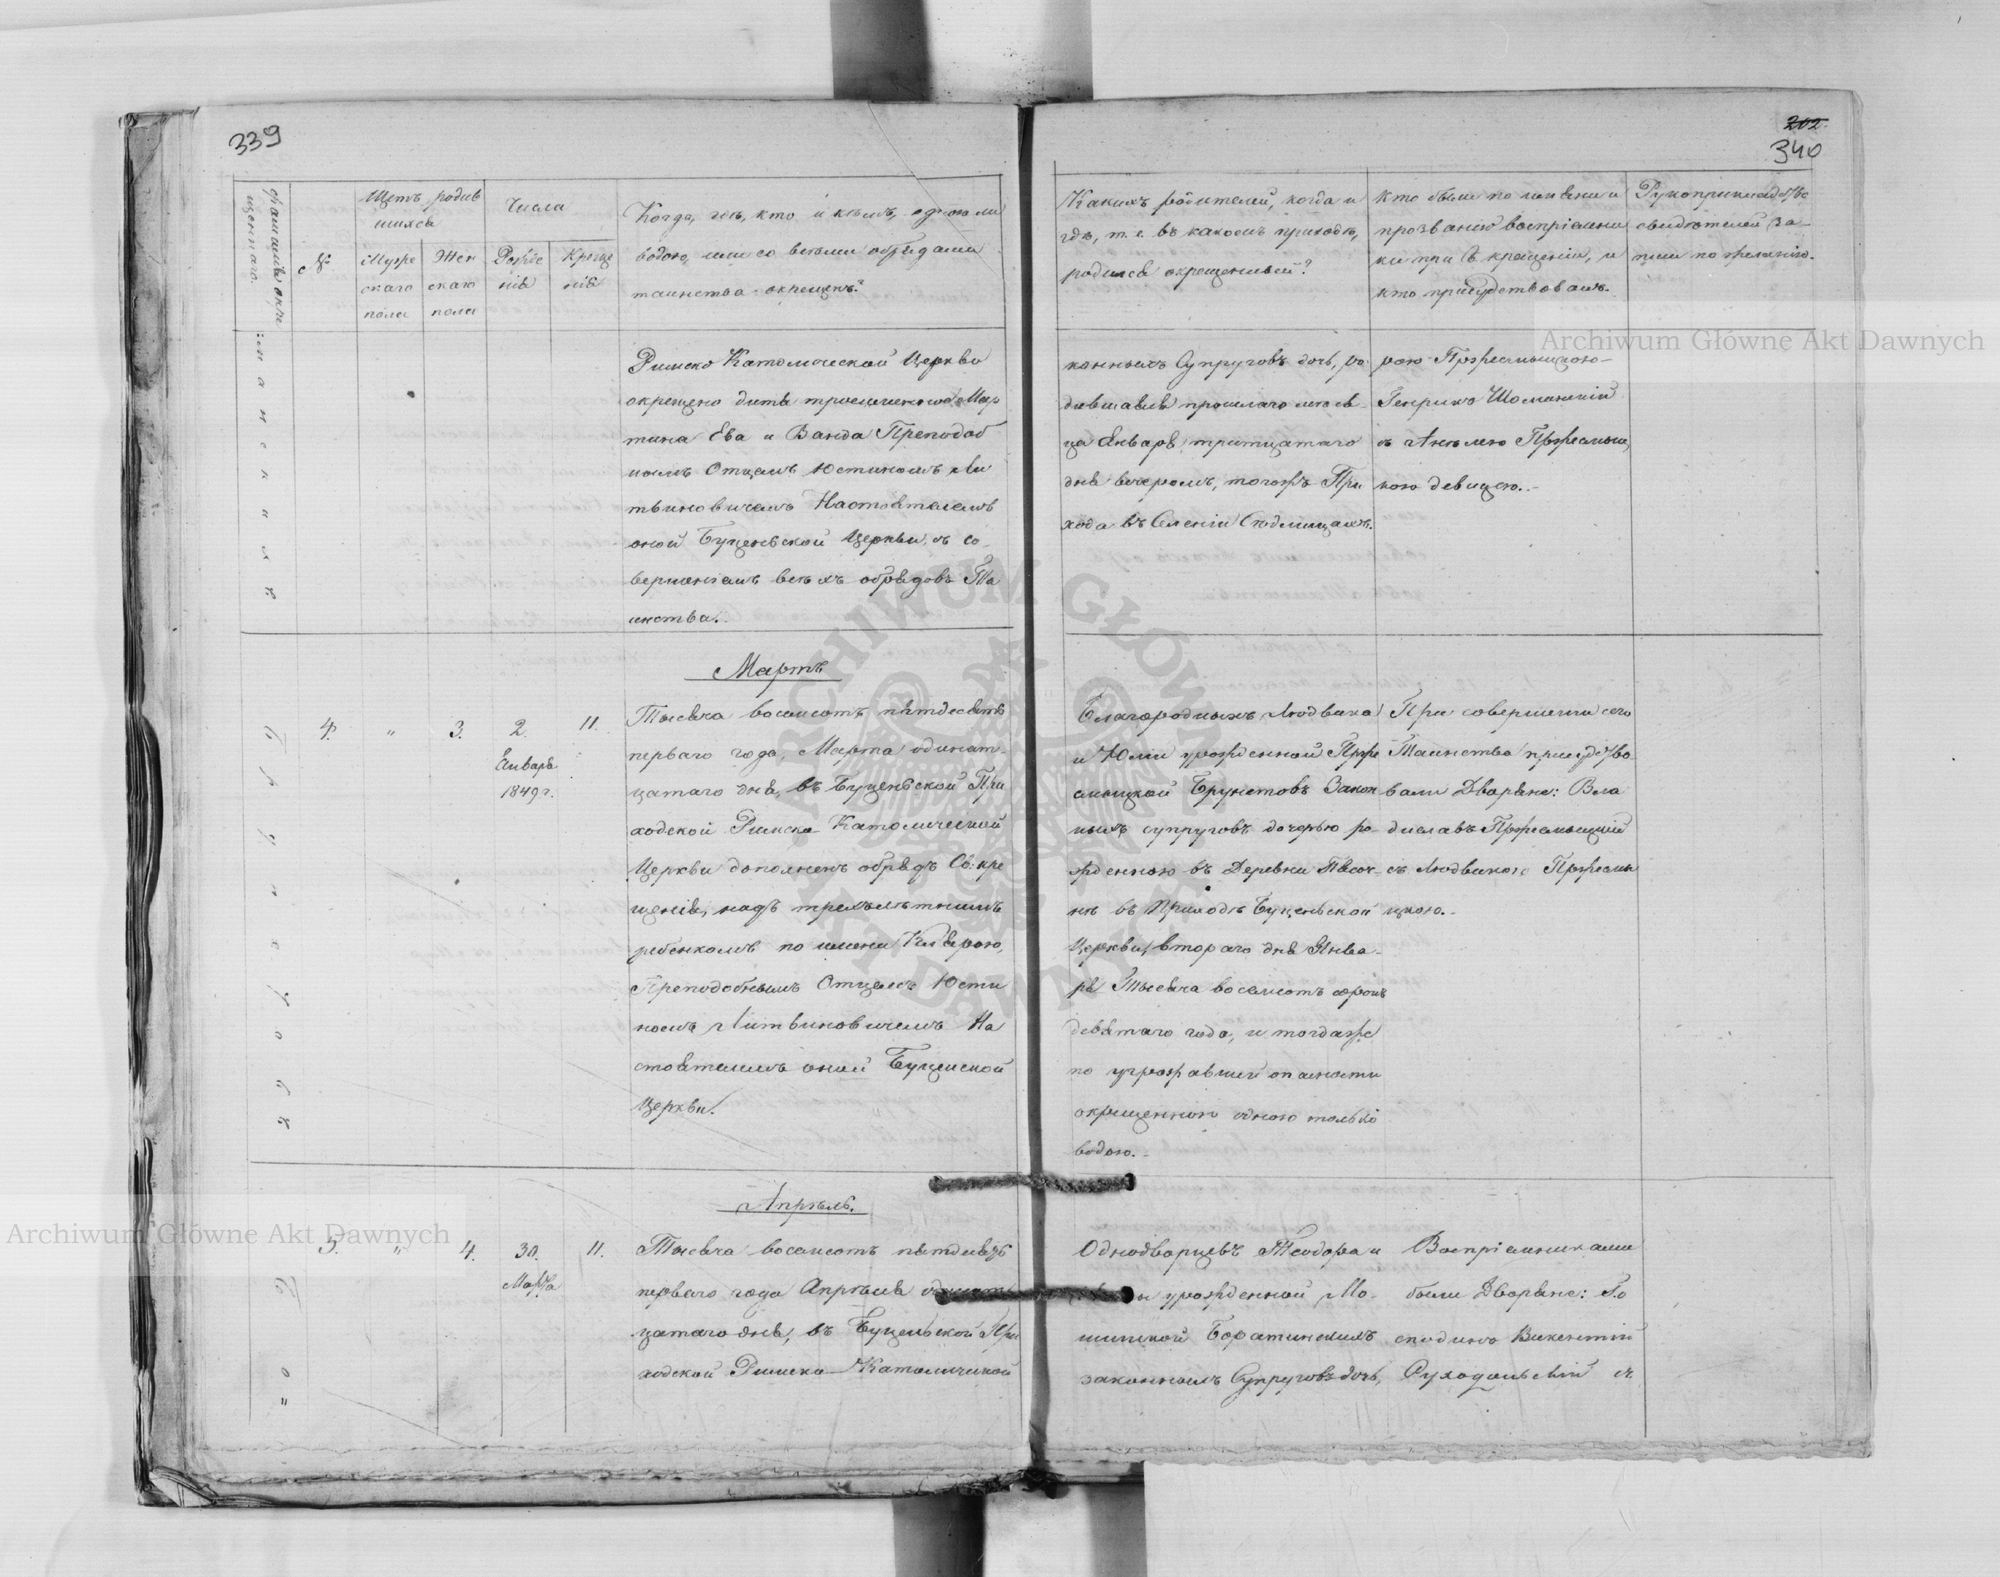 339
202.
340
Щетъ родив
шихся
Числа
№
Мужe
скаго
пола
Жен
скаго
пола
Рожде
нія
Креще
нія
Когда, гдѣ, кто и кѣмъ, одною ли
водою, или со всѣми обрядами
таинства окрещенъ?
Какихъ родителей, когда и
гдѣ, т. е. въ какомъ приходѣ,
родился окрещенный?
Кто были по имени и
прозванію воспріемни
ки при Св. крещеніи, и
кто присудствовалъ.
Рукоприкладство
свидѣтелей за-
писи по желанію.
Римско Католической Церкви
окрещено дитя троеименное Мар
тина Ева и Ванда Преподоб
нымъ Отцемъ Юстиномъ Ли
твиновичемъ Настоятелемъ
оной Буценевской Церкви, съ со-
вершеніемъ всѣхъ обрядовъ Та
инства.
конныхъ Супруговъ дочь, ро-
дившаяся прошлаго мѣся-
ца Января тритцатаго
дня вечеромъ, тогожъ При
хода въ Селеніи
рою
Генрихъ
съ Анѣлею
кою девицею.
Мартъ
4.
"
3.
2.
Января
1849 г.
11.
Тысяча восемсотъ пятдесятъ
перваго года, Марта одинат-
цатаго дня, въ Буценевской При
ходской Римско Католической
Церкви дополненъ обрядъ Св: кре
щенія, надъ трехлѣтнимъ
ребенкомъ по имени Клярою,
Преподобнымъ Отцемъ Юсти
номъ Литвиновичемъ На
стоятелемъ оной Буценской
Церкви.
Благородныхъ Людвика
и Юліи урожденной
Брунетовъ Закон
ныхъ супруговъ дочерью ро-
жденною въ Деревни Пѣсоч-
нѣ въ Приходѣ Буценевской
Церкви, втораго дня Янва-
ря Тысяча восемсотъ сорокъ
девятаго года, и тогдаже
по угрожавшей опасности
окрещенною одною только
водою.
При совершеніи сего
Таинства присудство-
вали Дворяне: Вла
диславъ
съ Людвикою
цкою.
Апрѣль.
5.
"
4.
30.
Марта
11.
Тысяча восемсотъ пятдесятъ
перваго года Апрѣля одинат
цатаго дня, въ Буценевской При
ходской Римско Католической
Однодворцевъ Теодора и
урожденной Мо-
шинской Боратинскихъ
законныхъ Супруговъ дочь,
Воспріемниками
были Дворяне: Го
сподинъ Викентій
съ
Archiwum Główne Akt Dawnych
Archiwum Główne Akt Dawnych
ARCHIWUM GŁÓWNE AKT DAWNYCH